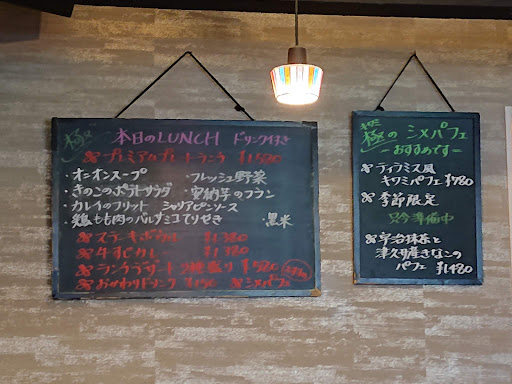 極 本日のLUNCH ドリンク付き
プレミアムプレートランチ ¥1580
・オニオンスープ ・フレッシュ野菜
・きのこのポテトサラダ ・安納芋のフラン
・カレイのフリット シャリアピンソース
・鶏もも肉のバルサミコてりやき ・黒米
ステーキボウル ¥1380
牛すじカレー ¥1380
ランチデザート 2種盛り ¥580
おかわりドリンク シメパフェ
極の シメパフェ
ーおすすめですー
ティラミス風
キワミパフェ ¥780
季節限定
只今準備中
宇治抹茶と
津久井産きなこの
パフェ ¥1480